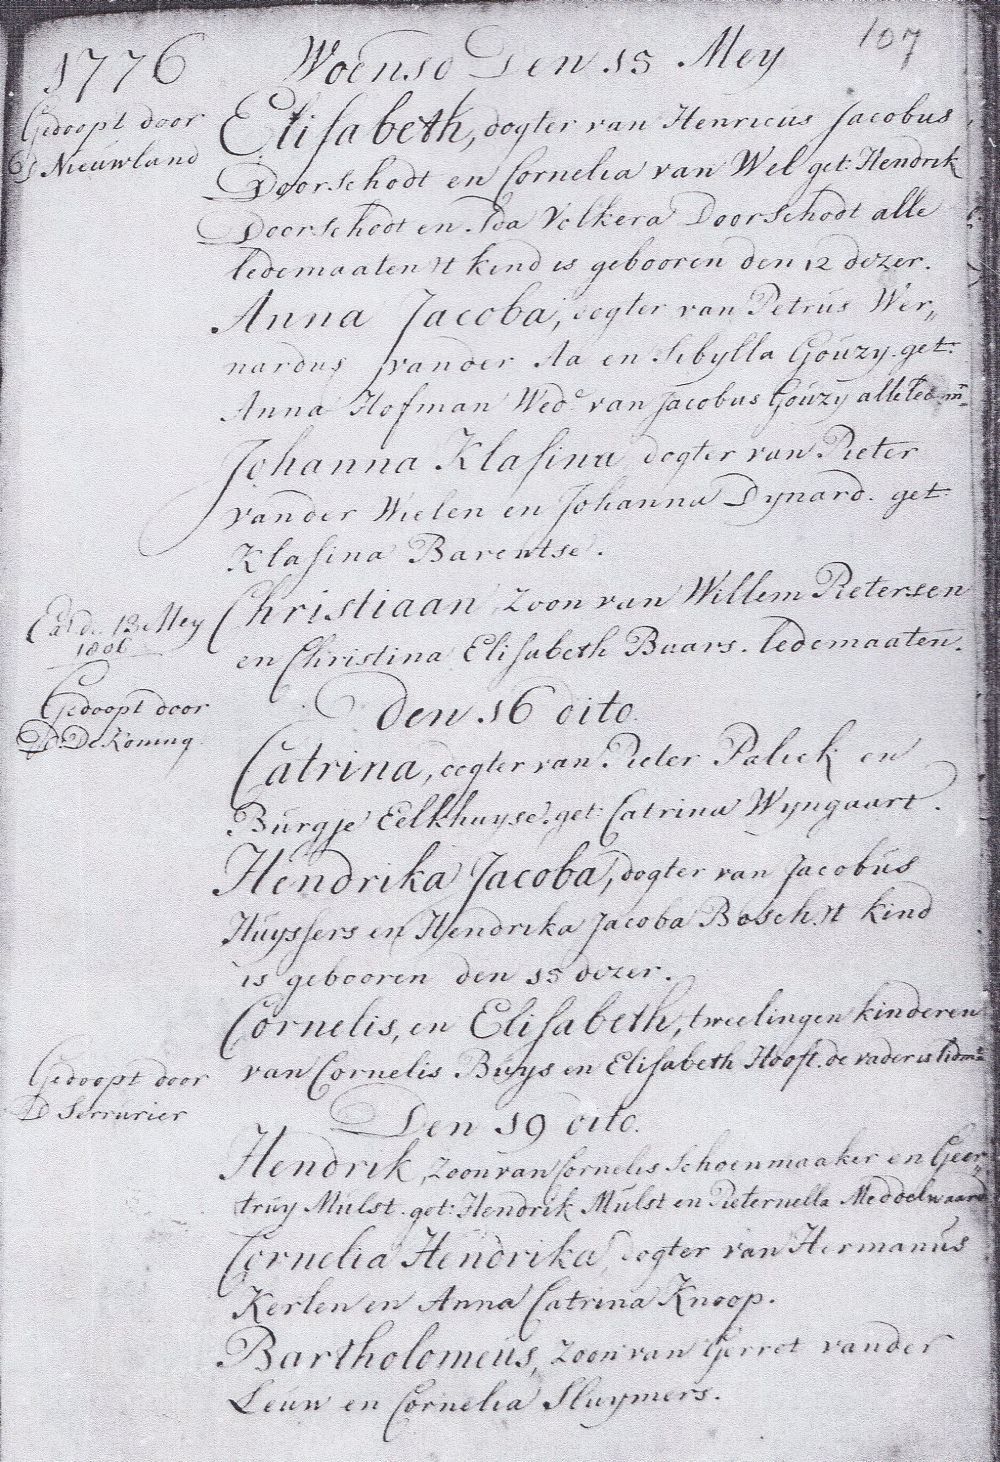 107
1776 Woensd Den 15 Mey
Gedoopt door
Ds Nieuwland
Elisabeth, dogter van Henricus Jacobus
Doorschodt en Cornelia van Wel get: Hendrik
Doorschodt en Ida Volkera Doorschodt alle
ledemaaten 't kind is gebooren den 12 dezer.
Anna Jacoba, dogter van Petrus Wer„
nardus vander Aa en Sibylla Gouzy. get:
Anna Hofman Wede van Jacobus Gouzy alle led:m:
Johanna Klasina dogter van Pieter
vander Wielen en Johanna Dynard. get:
Klasina Barentse.
13 Mey
1806
Christiaan, Zoon van Willem Pietersen
en Christina Elisabeth Baars. ledemaaten.
Den 16 dito.
Gedoopt door
D. De Koning
Catrina, dogter van Pieter Paliek en
Burgje Eelkhuyse. get: Catrina Wyngaart.
Hendrika Jacoba, dogter van Jacobus
Huyssers en Hendrika Jacoba Bosch. 't kind
is gebooren den 15 dezer.
Cornelis, en Elisabeth, tweelingen kinderen
van Cornelis Buys en Elisabeth Hooft. de vader is lidmt
Den 19 dito.
Gedoopt door
D Serrurier
Hendrik, Zoon van Cornelis Schoenmaaker en Geer„
truy Mulst. get: Hendrik Mulst en Pieternella Meddelwaard
Cornelia Hendrika, dogter van Hermanus
Kerlen en Anna Catrina Knoop.
Bartholomeus, Zoon van Gerret vander
Leuw en Cornelia Sluymers.